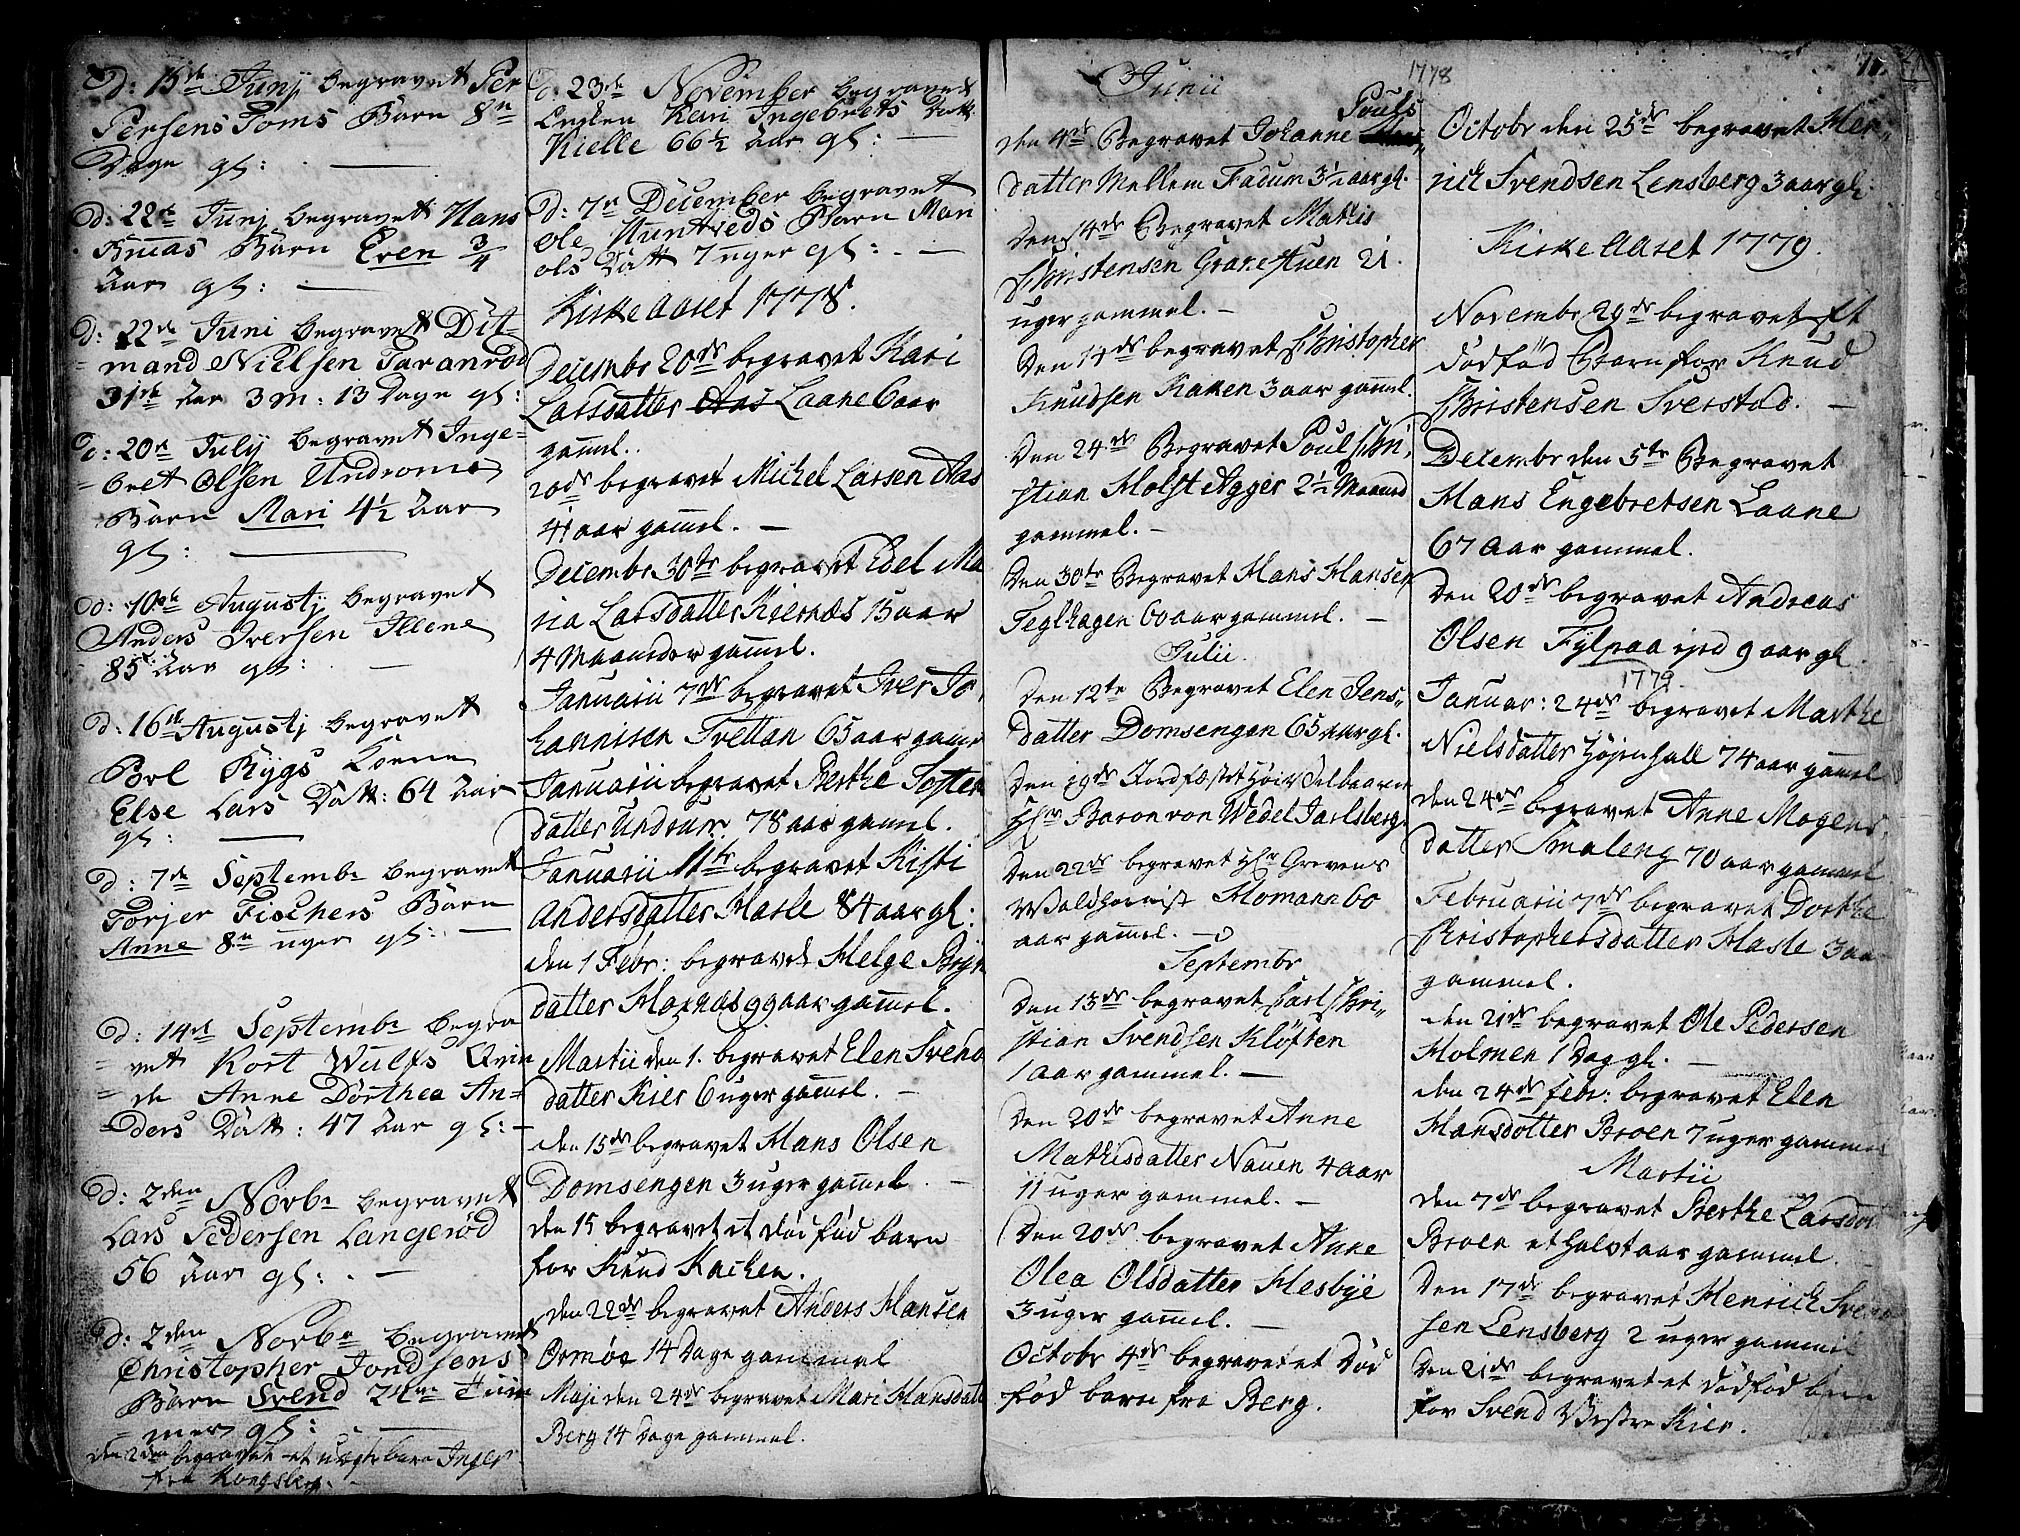 D: 15de Junj begravet Per
Persens Toms Barn 8te
Dage gl:
D: 22de Junj begravet Hans
Knuas Barn Even 3/4
Aar gl:
D: 22de Juni begravet Dit-
mand Nielsen Taranrød
31de Aar 3 M: 13 Dage gl:
D: 20de July begravet Inge-
bret Olsen Undroms
Barn Mari 4 1/2 Aar
gl:
D: 10de Augustj begravet
Anders Iversen Illene
85 Aar gl:
D: 16de Augustj begravet
Povl Rygs Kone
Else Lars Datt: 64 Aar
gl:
D: 7de Septembr begravet
Torjer Fischers Barn
Anne 8te uger gl:
D: 14de Septembr begra
vet Kort Wulfs Qvin
de Anne Dorthea An-
ders Datt: 47 Aar gl:
D: 2den Novbr begravet
Lars Pedersen Langerød
56 Aar gl:
D: 2den Novbr begravet
Christopher Jondsens
Barn Svend 24de Tim
mer gl:
Den 2den begravet et uægte barn Inger
fra Kongsberg.
D: 23de November begravet
Enken Kari Ingebrets Datt
Kielle 66 1/2 Aar gl:
D: 7de December begravet
Ole Huntveds Barn Mari
Ols Datt 7 uger gl:
Kirke Aaret 1778.
Decembr 20de begravet Kari
Larsdatter Aas Laane 6 aar
gammel.
20de begravet Michel Larsen Aas
41 aar gammel.
Decembr 30te begravet Edel Ma
ria Larsdatter Kiernæs 15 aar
4 Maaneder gammel.
Januarii 7de begravet Iver Jo
hannisen Trettan 65 aar gammel
Januarii begravet Berthe Soften
datter Undrum 78 aar gammel.
Januarii 11te begravet Kisti
Andersdatter Hasle 84 aar gl:
den 1 Febr: begravet Helge Børn
datter Hornæs 99 aar gammel.
Martii den 1. begravet Elen Svend
datter Kier 6 uger gammel.
den 15de begravet Hans Olsen
Domsengen 3 uger gammel.
den 15 begravet et død fød barn
for Knud Kachen.
den 22de begravet Anders Hansen
Ormøe 14 Dage gammel
Maji den 24de begravet Mari Hansdatt
Berg 14 Dage gammel.
1778
Junii
Pouls
Den 4de Begravet Johanne
datter Mellem Fadum 3 1/2 aar gl.
Den 14de Begravet Mathis
Christensen Gravestuen 21
uger gammel.
Den 14de begravet Christopher
Knudsen Kaken 3 aar gammel.
Den 24de Begravet Poul Chri
stian Holst Agger 2 1/2 Maaned
gammel.
Den 30te Begravet Hans Hansen
Teglhagen 60 aar gammel.
Julii.
Den 12te Begravet Elen Jens
datter Domsengen 65 aar gl.
Den 19de Jordfæstet Høivelbaarne
Hr Baron von Wedel Jarlsberg.
Den 22de begravet Hr Grevens
Waldhornist Homann 60
aar gammel.
Septembr
Den 13de begravet Carl Chri
stian Svendsen Kløften
1 aar gammel.
Den 20de begravet Anne
Mathisdatter Nauen 4 aar
11 uger gammel.
Den 20de begravet Anne
Olea Olsdatter Hesbye
3 uger gammel.
Octobr 4de begravet et Død
fød barn fra Berg.
Octobr den 25de begravet Hen
rich Svendsen Lensberg 3 aar gl:
Kirke Aaret 1779.
Novembr 29de begravet Et
dødfød Barn for Knud
Christensen Sverstad.
Decembr den 5te Begravet
Hans Engebretsen Laane
67 Aar gammel.
Den 20de begravet Andreas
Olsen Fylpaa ipd 9 aar gl.
1779.
Januar: 24de begravet Marthe
Nielsdatter Højenhall 74 aar gammel
den 24de begravet Anne Mogens
datter Smaleng 70 aar gammel
Februarii 7de begravet Dorthe
Christophersdatter Hasle 3 aar
gammel.
den 21de begravet Ole Pedersen
Holmen 1 Dag gl.
den 24de febr: begravet Elen
Hansdotter Broen 7 uger gammel
Martii
Den 7de begravet Berthe Larsdot
Broen et halvt aar gammel.
Den 17de begravet Henrich Svend
sen Lensberg 2 uger gammel
Den 21de begravet et dødfød barn
for Svend Vestre Kier.